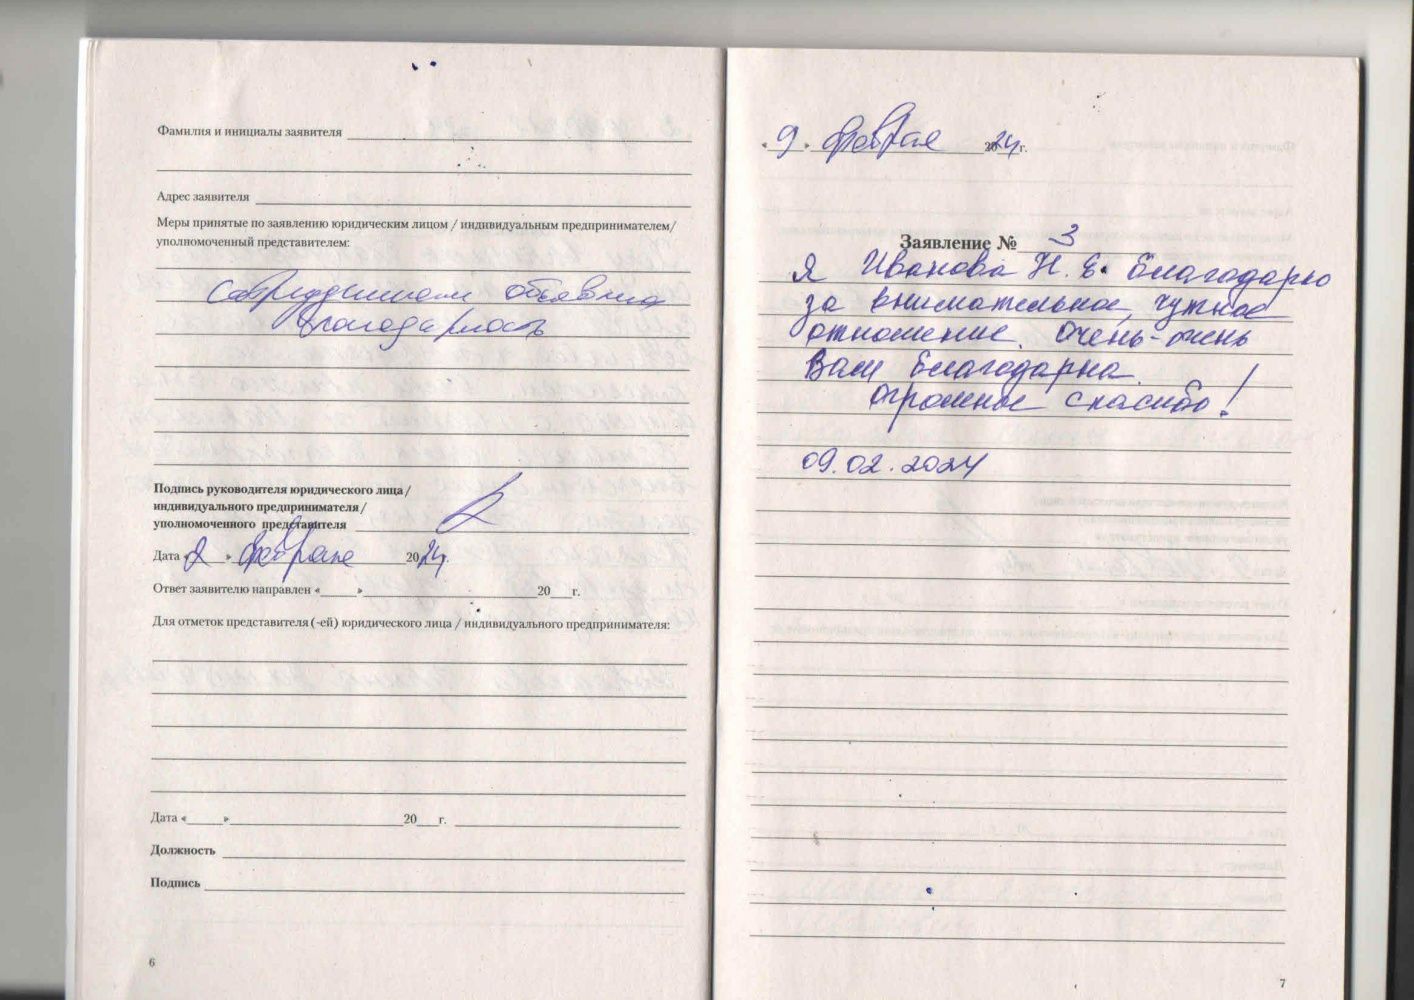 Фамилия и инициалы заявителя
Адрес заявителя
Меры принятые по заявлению юридическим лицом / индивидуальным предпринимателем/
уполномоченный представителем:
объявлена
благодарность
Подпись руководителя юридического лица /
индивидуального предпринимателя /
уполномоченного представителя
Дата «2» февраля 2024г.
Ответ заявителю направлен «_____»_____20___г.
Для отметок представителя (-ей) юридического лица / индивидуального предпринимателя:
Дата «_____»_____20___г.
Должность
Подпись
6
«9» февраля 2024г.
Заявление № 3
Я Иванова Н. Е. благодарю
за внимательное, чуткое
отношение. Очень-очень
Вам благодарна.
Огромное спасибо!
09.02.2024
7